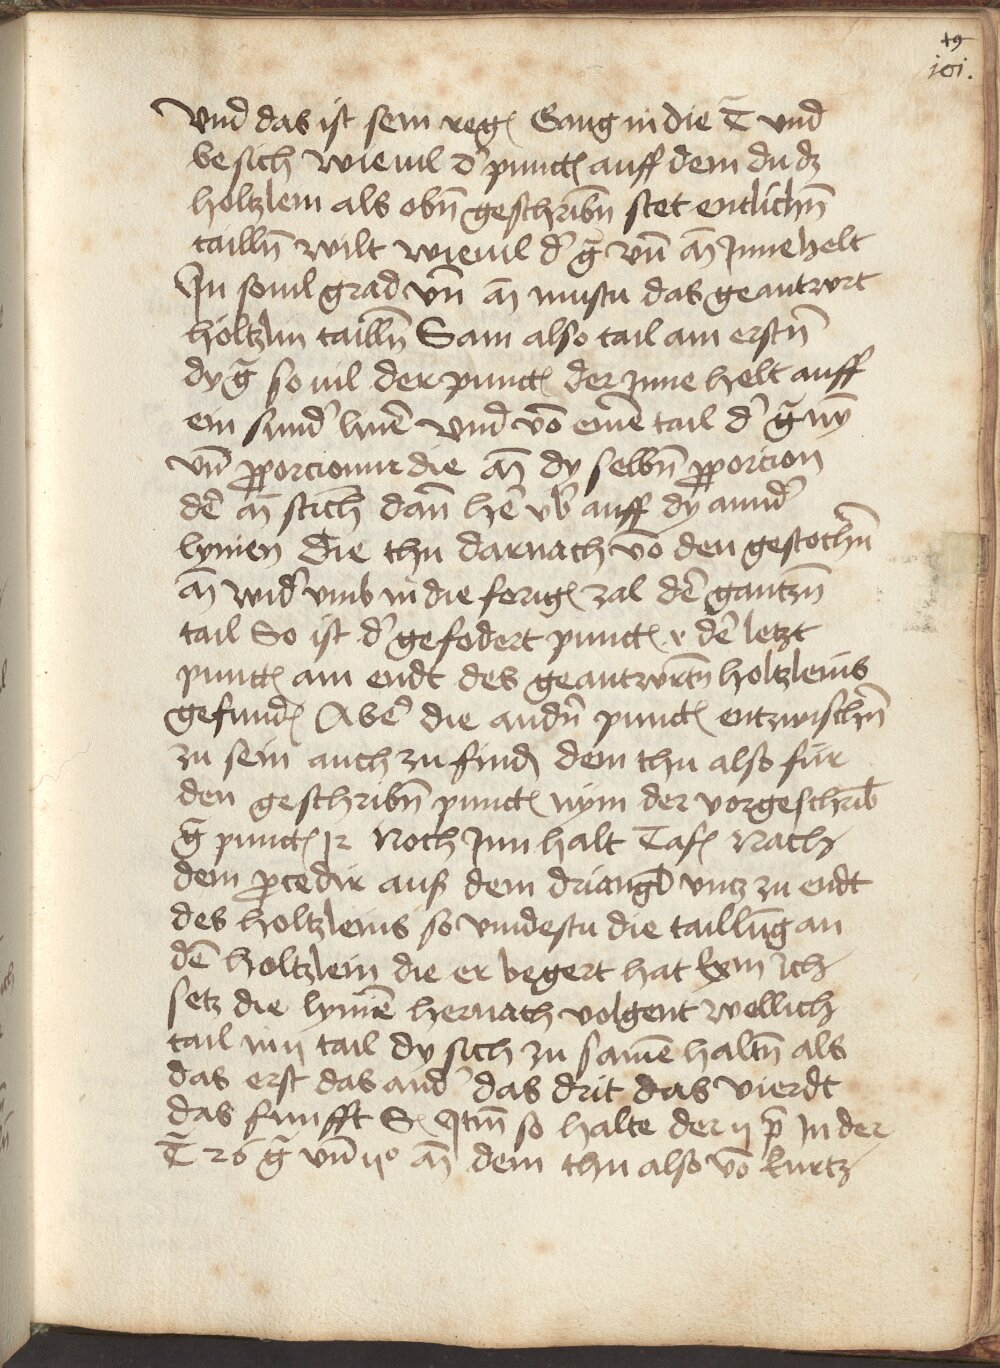 49
101.
Vnd das ist sein reg Gang in die T̄ vnd
besich wieuil d' punct auff dem du dz
holtzlein als obn̄ geschribn̄ stet entlichn̄
tailln̄ wilt wieuil d' ḡ vn̄ m̄ Inne helt
In souil grad vn̄ m̄ mustu das geantwrt
holtzlin tailln̄ Sam also tail am erstn̄
dy ḡ so uil der punct der Inne helt auff
ein sund' lynē Vnd vō einē tail d' ḡ ny̅
vn̄ proporcionir die m̄ dy selbn̄ proporcion
dē m̄ stich dan̄ hē vb' auff dy annd'
lynien Die thu darnach vō den gestochn̄
m̄ wid' vmb in die forig zal dē gantzn̄
tail So ist d' gefodert punct v dē letzt
punct am endt des geantwrtn̄ holtzleins
gefund Abe' die andn̄ punct entzwischn̄
zu sein auch zu find dem thu also für
den geschribn̄ punct nym der vorgeschrib
ḡ punct 12 Noch Inn halt Taf Nach
dem procedir auß dem driangl vntz zu endt
des holtzleins so vindestu die taillūg an
dē holtzlein die er begert hat Ich
setz die lynienē hernach volgent wellich
tail tail dy sich zu samē haltn̄ als
das erst das and' das drit das vierdt
das funfft Itm̄ so halte der ij p̄ In der
T̄ 26 ḡ vn̄ m̄ dem thu also vō kurtz